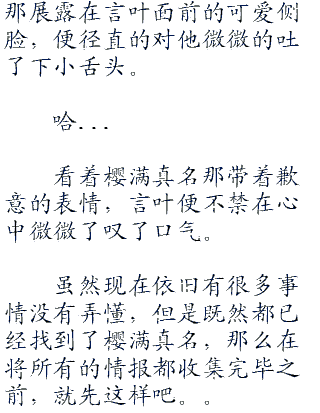 那展露在言叶面前的可爱侧
脸，便径直的对他微微的吐
了下小舌头。
哈...
看着樱满真名那带着歉
意的表情，言叶便不禁在心
中微微了叹了口气。
虽然现在依旧有很多事
情没有弄懂，但是既然都已
经找到了樱满真名，那么在
将所有的情报都收集完毕之
前，就先这样吧。。